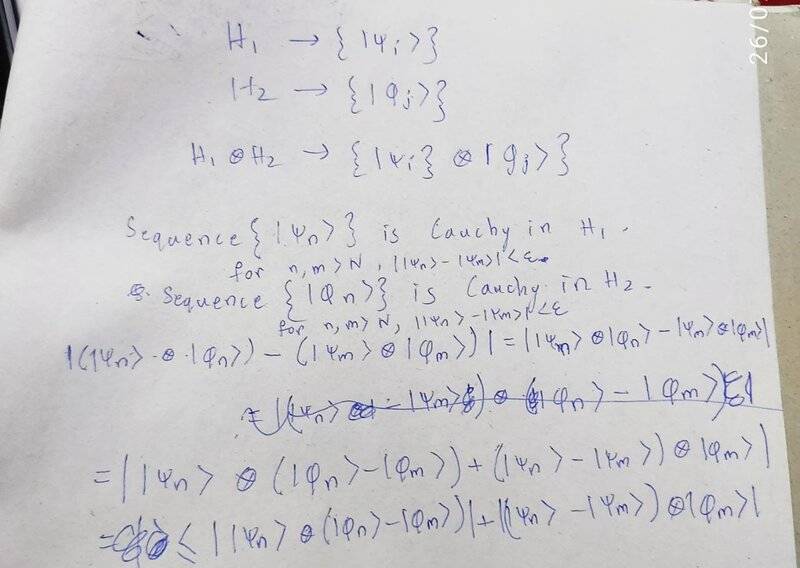 26/0
H₁ → {|ψᵢ>}
H₂ → {|φⱼ>}
H₁ ⊗ H₂ → {|ψᵢ} ⊗ |φⱼ>}
Sequence {|ψₙ>} is Cauchy in H₁.
for n,m > N, ||ψₙ> - |ψₘ>| < ε
Sequence {|φₙ>} is Cauchy in H₂.
for n,m > N, ||ψₙ> - |ψₘ>| < ε
|(|ψₙ> ⊗ |φₙ>) - (|ψₘ> ⊗ |φₘ>)| = ||ψₘ> ⊗ |φₙ> - |ψₘ> ⊗ |φₘ>|
= ||ψₙ> ⊗ (|φₙ> - |φₘ>) + (|ψₙ> - |ψₘ>) ⊗ |φₘ>|
≤ ||ψₙ> ⊗ (|φₙ> - |φₘ>)| + |(|ψₙ> - |ψₘ>) ⊗ |φₘ>|